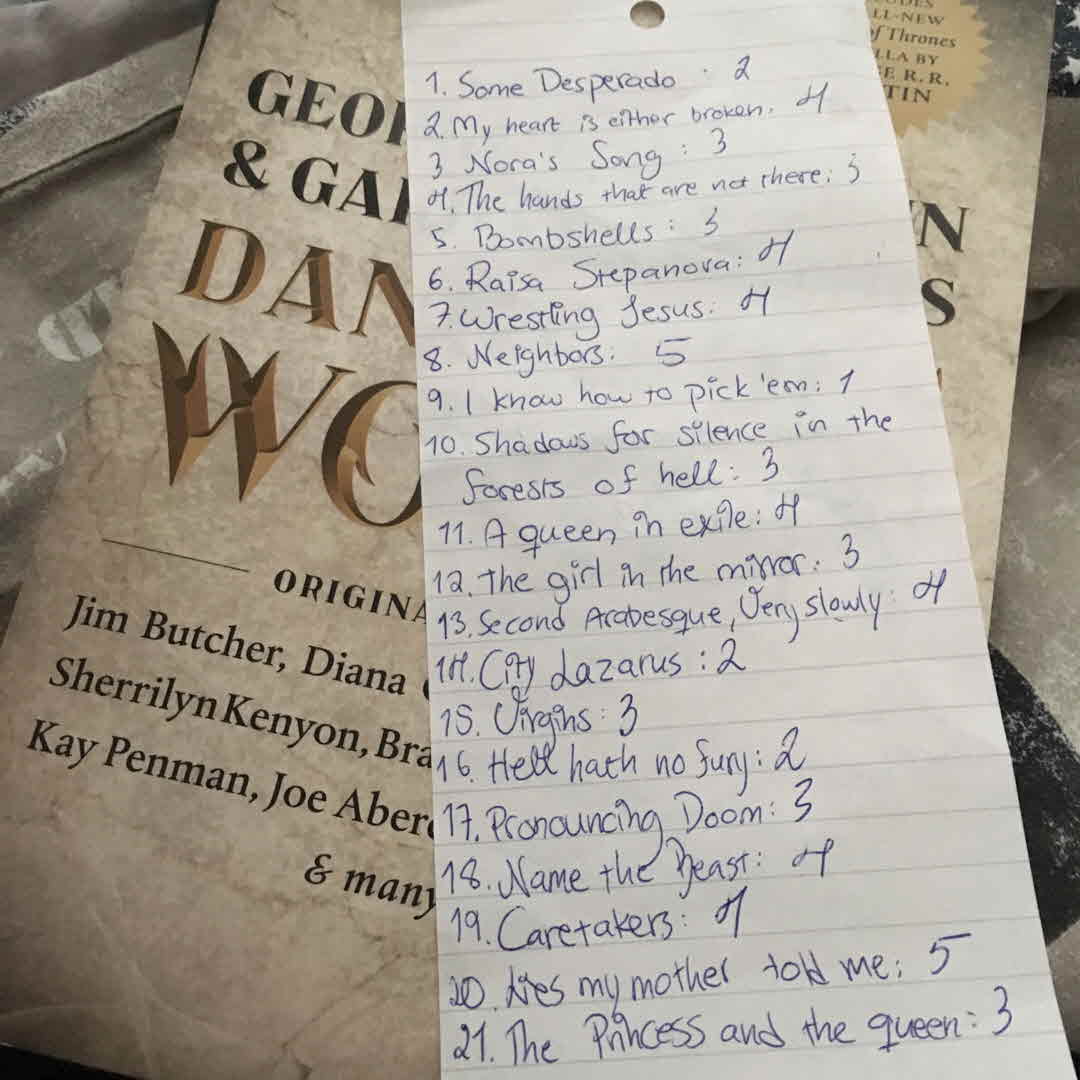 GEOR
& GAR
DAN
WO
ORIGINA
Jim Butcher, Diana
Sherrilyn Kenyon, Bra
Kay Penman, Joe Aberc
& many
LL-NEW
of Thrones
LLA BY
E R. R.
TIN
N
S
1. Some Desperado : 2
2. My heart is either broken. 4
3 Nora's Song : 3
4. The hands that are not there: 3
5. Bombshells : 3
6. Raisa Stepanova: 4
7. Wrestling Jesus: 4
8. Neighbors: 5
9. I know how to pick 'em: 1
10. Shadows for silence in the
forests of hell: 3
11. A queen in exile: 4
12. the girl in the mirror: 3
13. Second Arabesque, Very slowly: 4
14. City Lazarus : 2
15. Virgins : 3
16. Hell hath no fury: 2
17. Pronouncing Doom: 3
18. Name the Beast: 4
19. Caretakers: 4
20. Lies my mother told me: 5
21. The Princess and the queen: 3